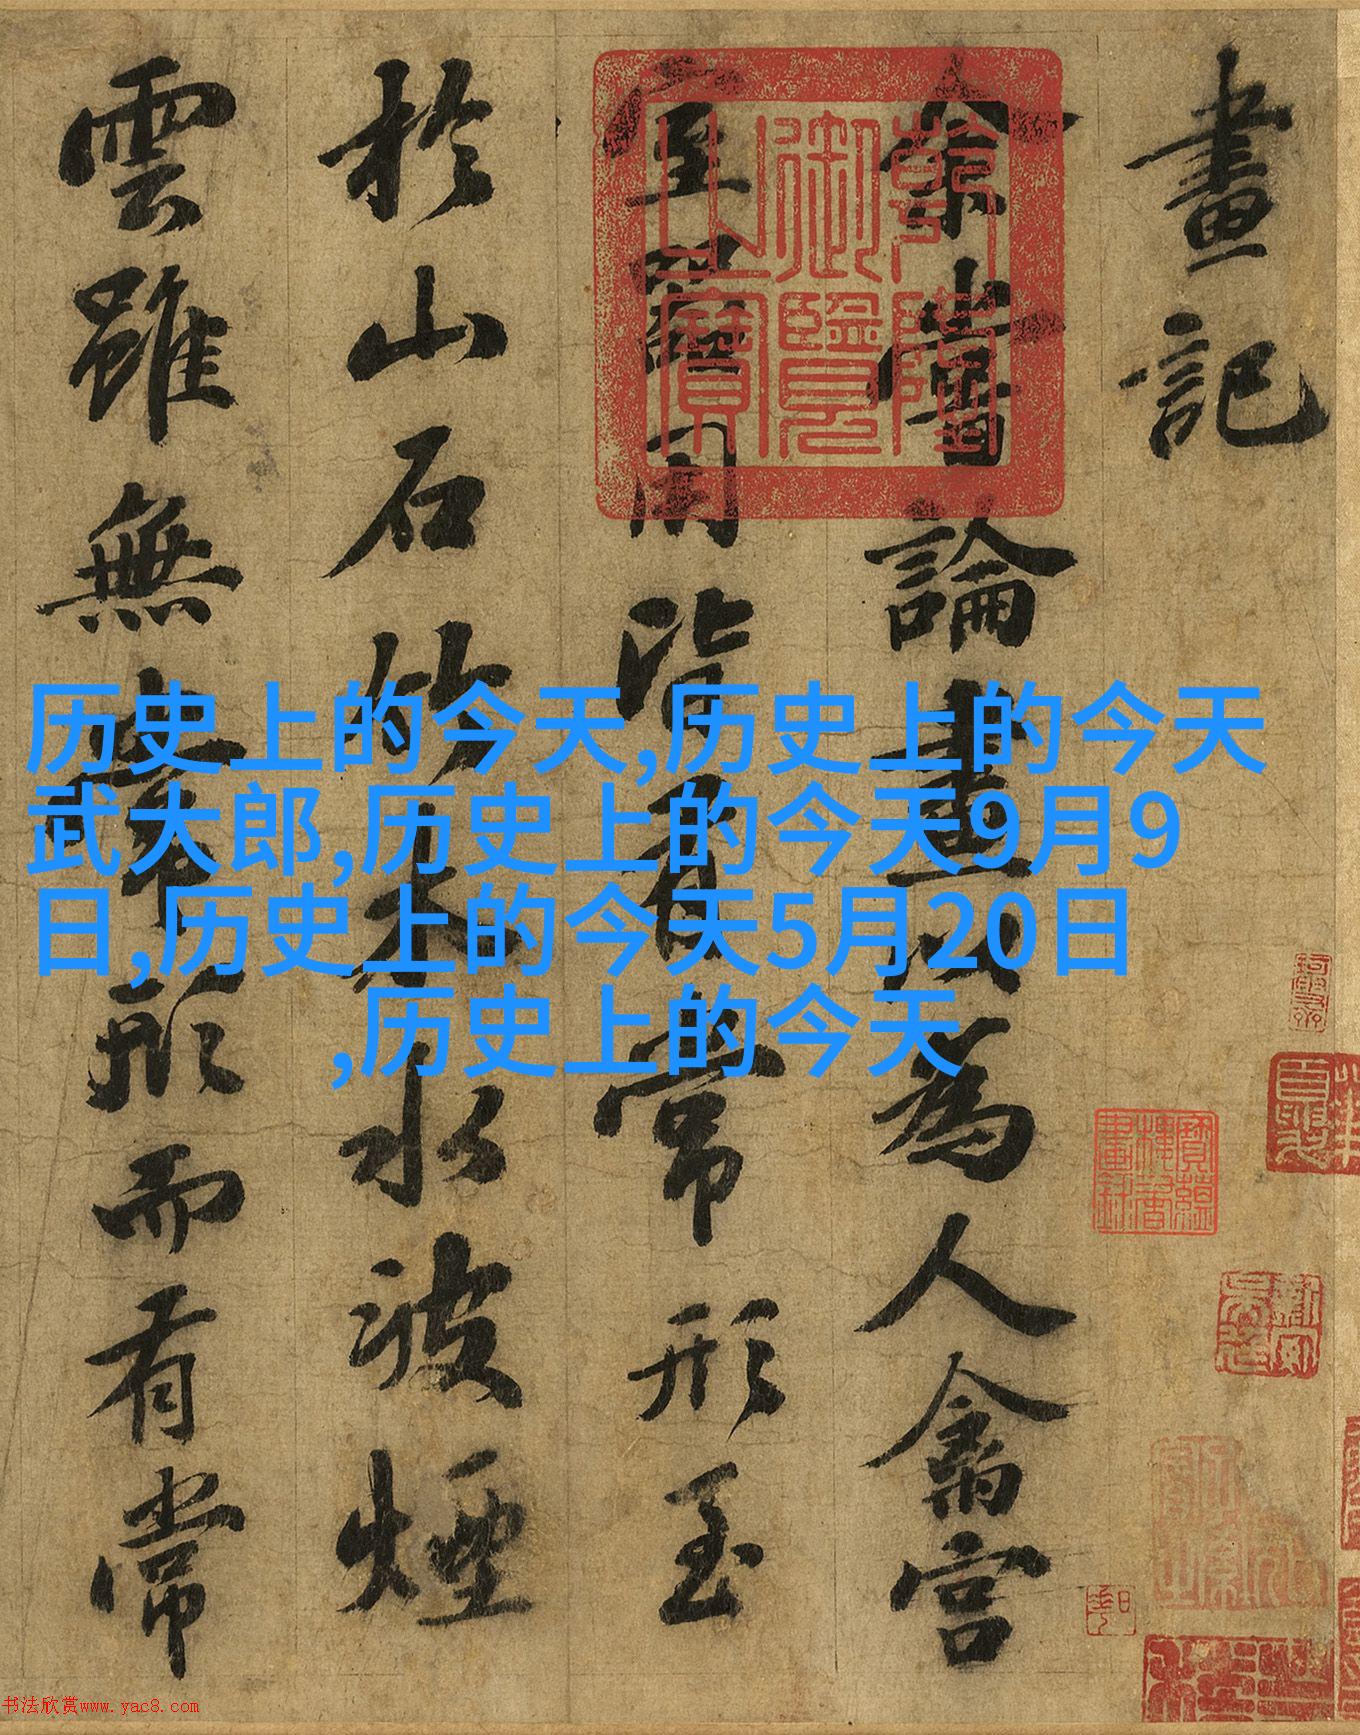 畫記
余嘗論畫以為人禽宮
室器用皆有常形至
於山石竹木水波煙
雲雖無常形而有常
乾隆御覽之寶
历史上的今天,历史上的今天
武大郎,历史上的今天9月9
日,历史上的今天5月20日
,历史上的今天
书法欣赏www.yac8.com